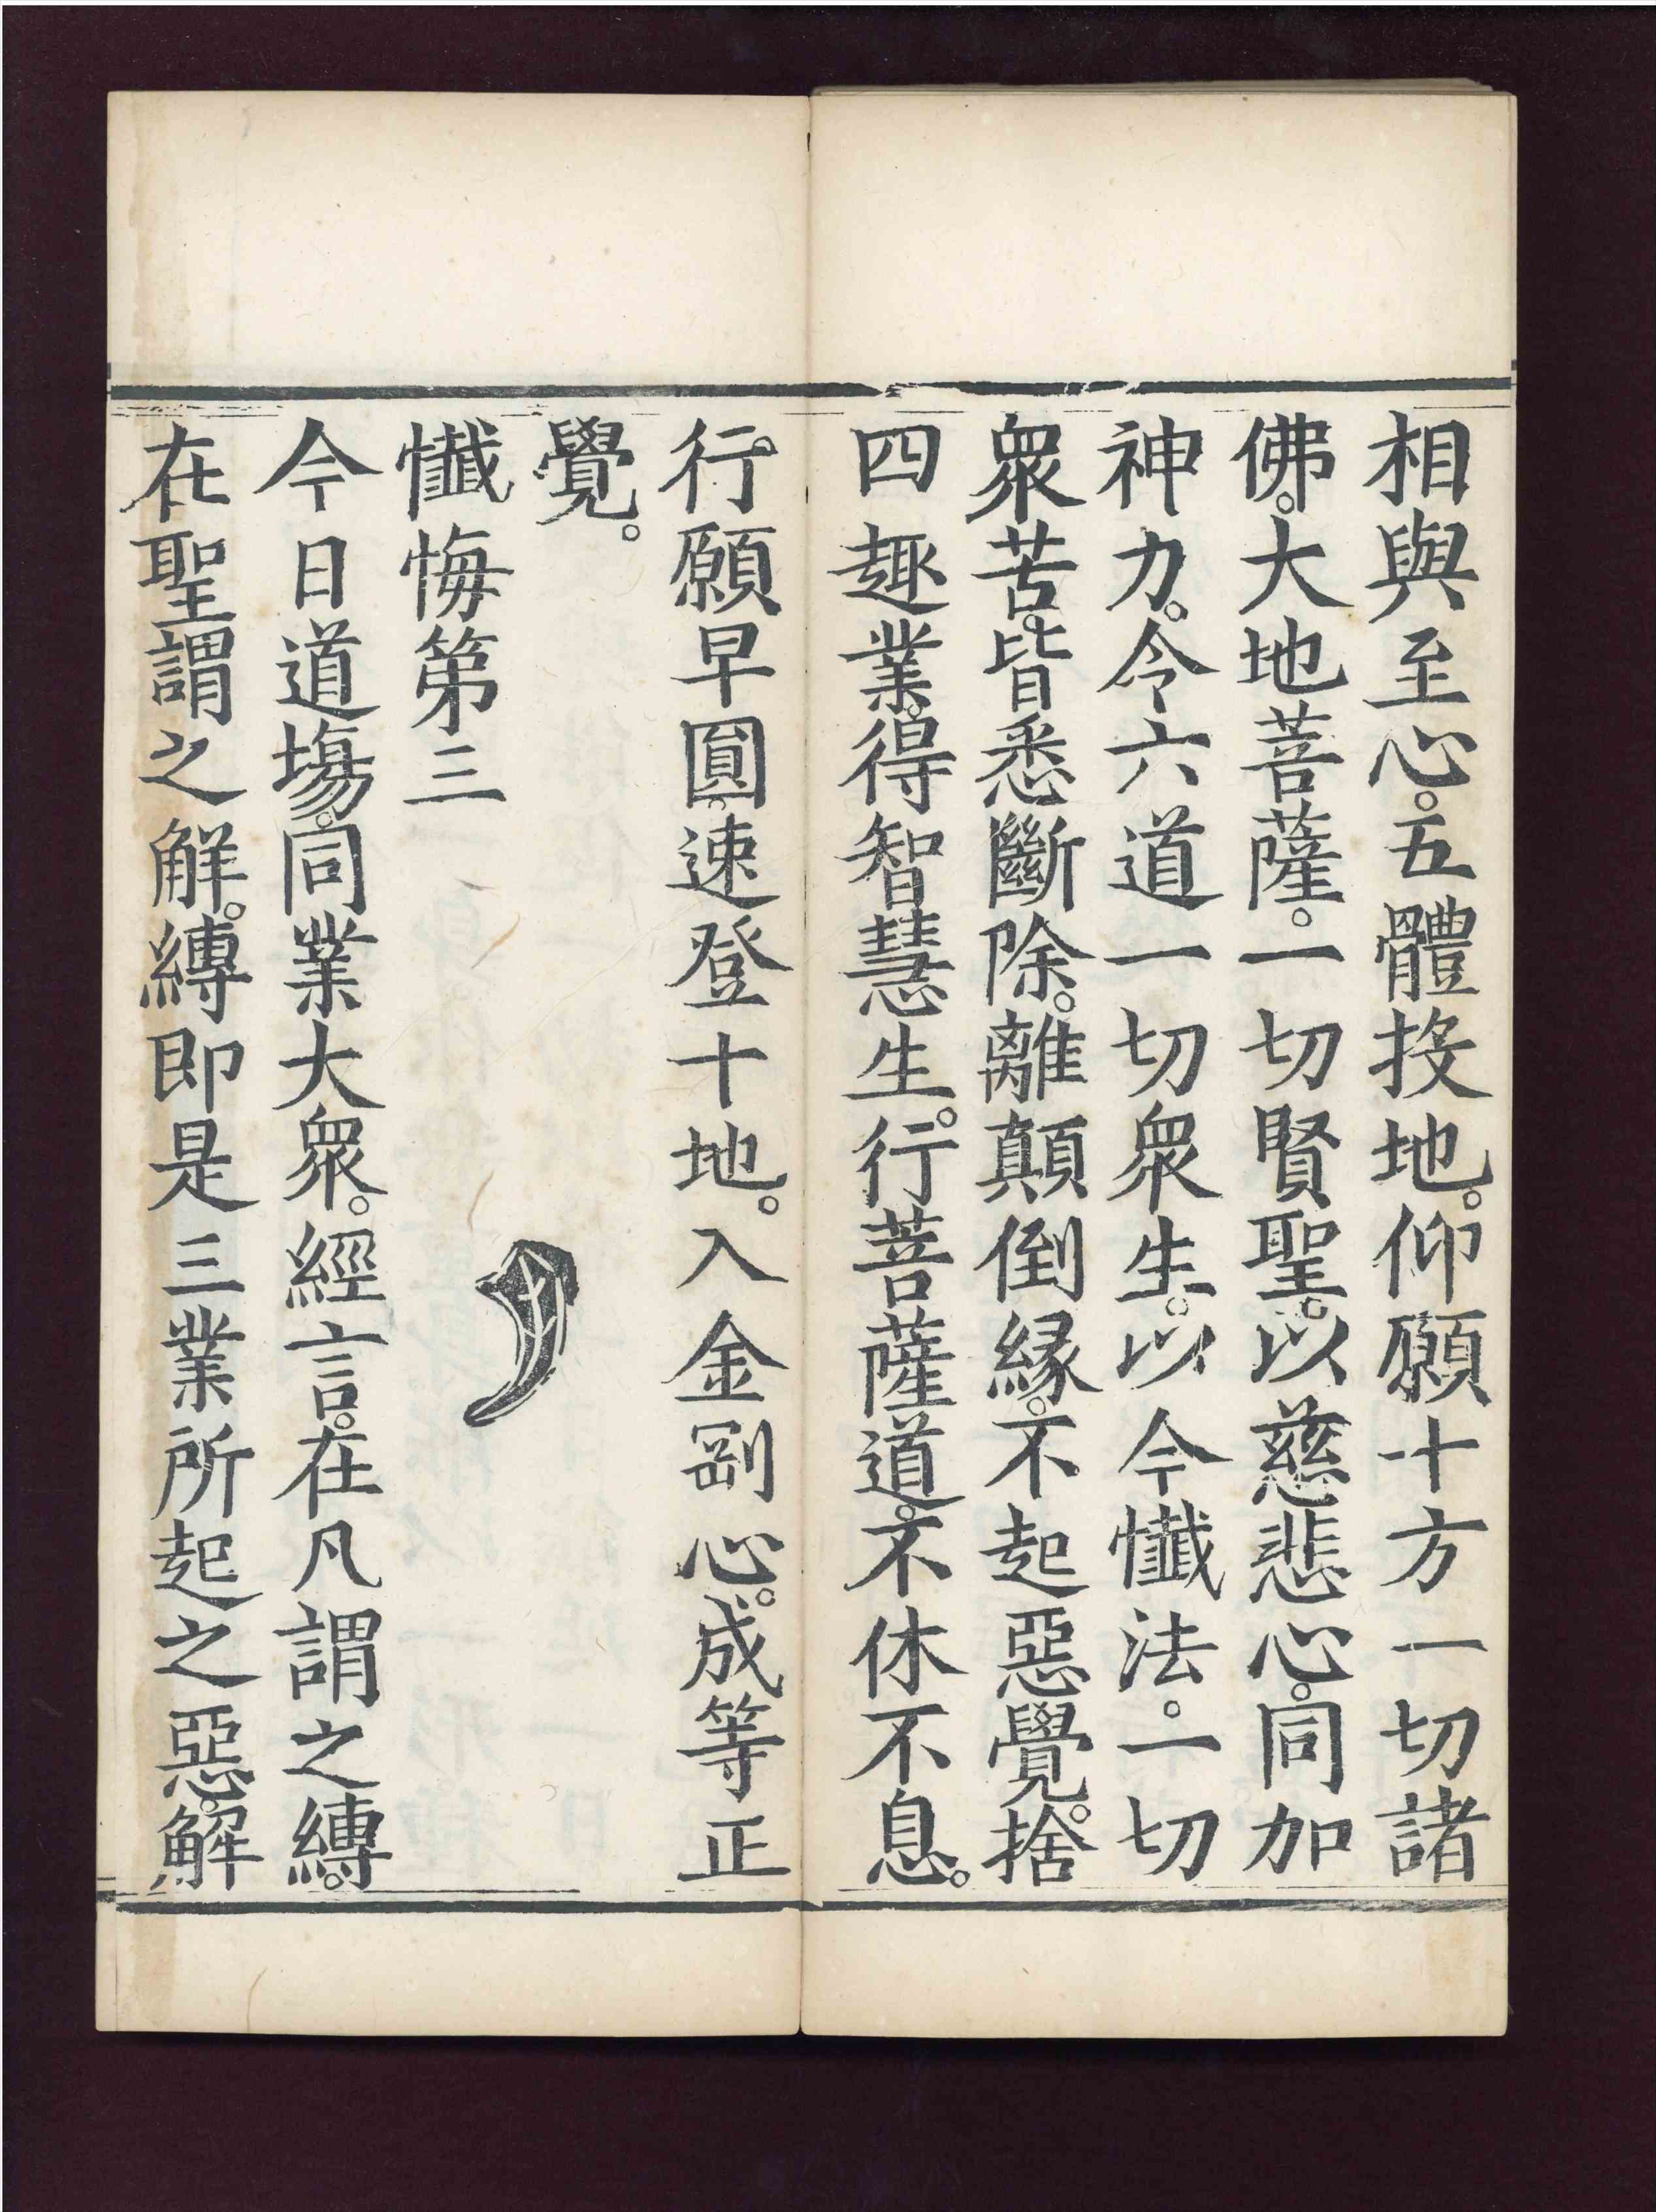 相與至心。五體投地。仰願十方一切諸
佛。大地菩薩。一切賢聖。以慈悲心。同加
神力。令六道一切衆生。以今懺法。一切
衆苦。皆悉斷除。離顛倒緣。不起惡覺。捨
四趣業。得智慧生。行菩薩道。不休不息。
行願早圓。速登十地。入金剛心。成等正
覺。
懺悔第三
今日道場。同業大衆。經言。在凡謂之縛。
在聖謂之解。縛即是三業所起之惡。解